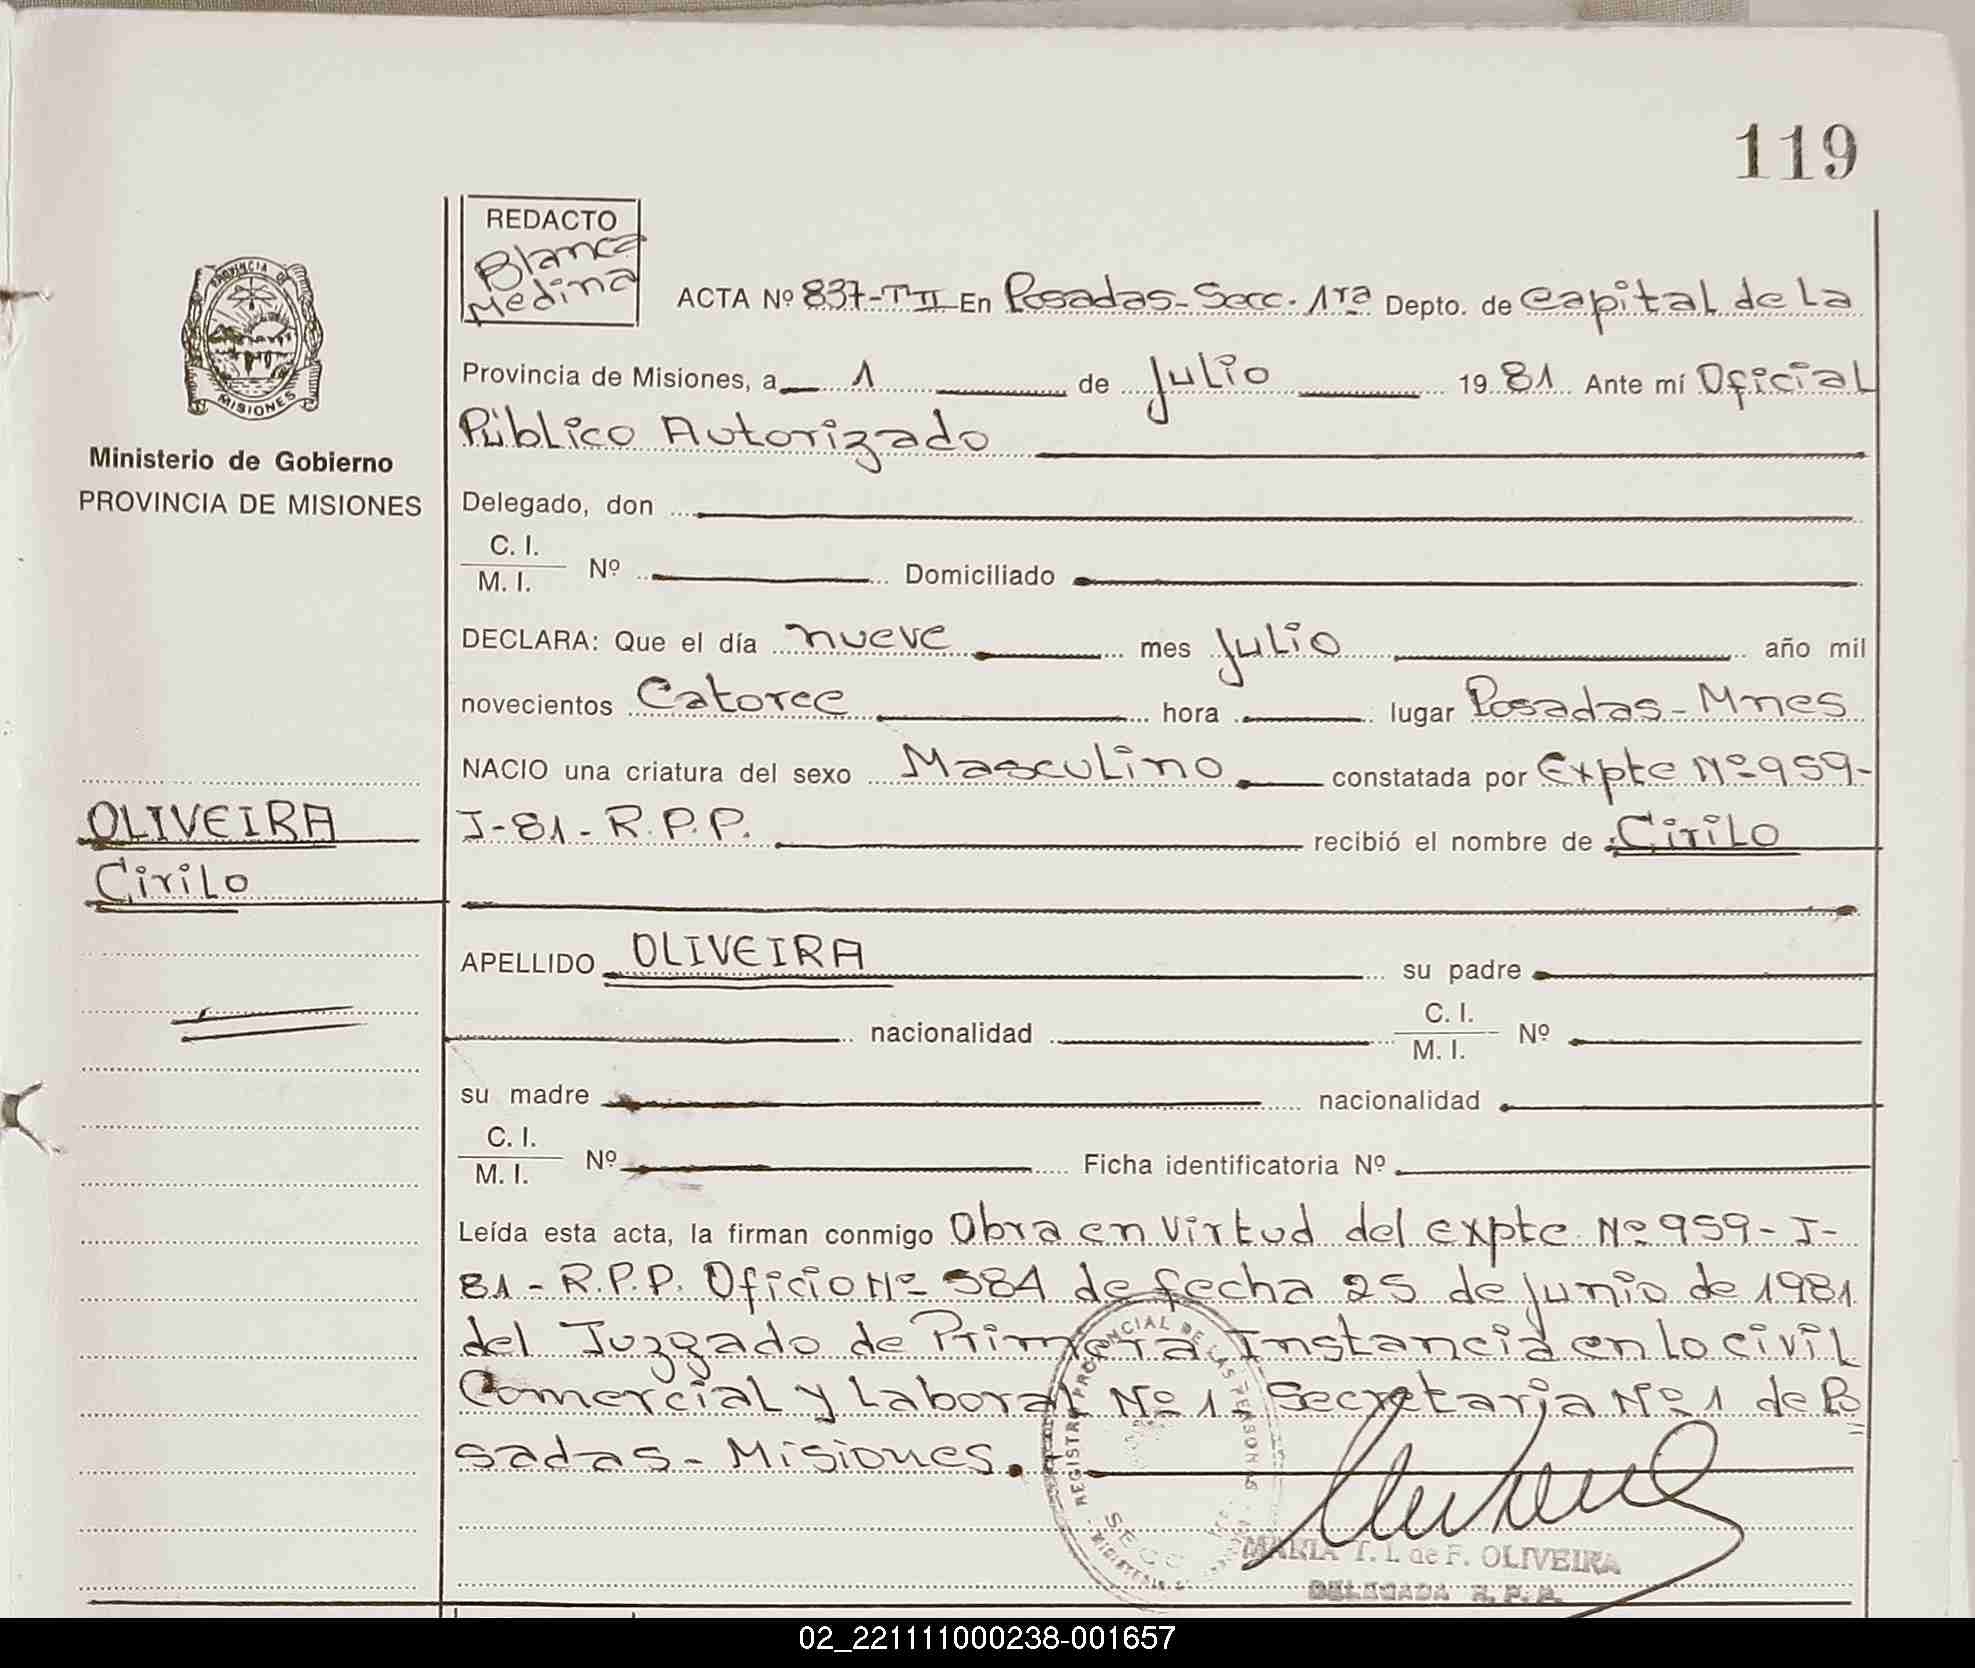 119
REDACTO
Blanca
Medina
PROVINCIA DE
MISIONES
Ministerio de Gobierno
PROVINCIA DE MISIONES
ACTA Nº 837-TºII En Posadas-Secc. 1ra Depto. de Capital de La
Provincia de Misiones, a 1 de Julio 1981 Ante mí Oficial
Público Autorizado
Delegado, don
C. I.
M. I. Nº Domiciliado
DECLARA: Que el día nueve mes Julio año mil
novecientos Catorce hora lugar Posadas-Mnes
NACIO una criatura del sexo Masculino constatada por Expte Nº959-
OLIVEIRA
J-81-R.P.P. recibió el nombre de Cirilo
Cirilo
APELLIDO OLIVEIRA su padre
nacionalidad C. I.
M. I. Nº
su madre nacionalidad
C. I.
M. I. Nº Ficha identificatoria Nº
Leída esta acta, la firman conmigo Obra en virtud del expte. Nº959-J-
81-R.P.P. Oficio Nº 584 de fecha 25 de Junio de 1981
del Juzgado de Primera Instancia en lo civil
Comercial y Laboral Nº 1, Secretaria Nº 1 de Po
sadas-Misiones.
REGISTRO PROVINCIAL DE LAS PERSONAS
SECC
MARIA T. I. de F. OLIVEIRA
DELEGADA R. P. P.
02_221111000238-001657